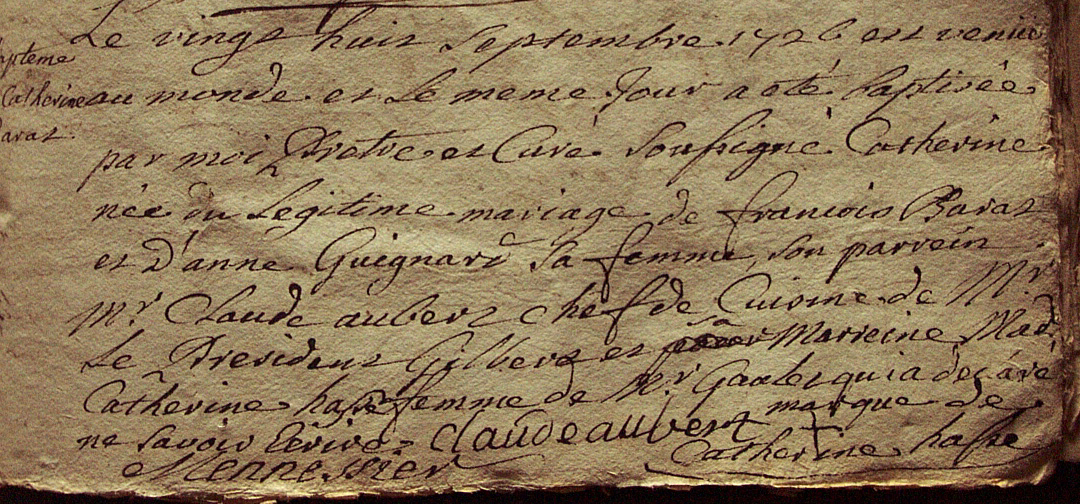 Le vingt huit Septembre 1726 est venüe
apteme
Catherine
arat
au monde et Le meme Jour a eté baptisée
par moi Pretre et Curé Soussigné Catherine
née du Legitime mariage de francois Barat
et D'anne Guignard Sa femme, son parrein
Mr Claude aubert chef de Cuisine de Mr
Le President Gilbert et sa Marreine Mad
Catherine hasse femme de Mr qui a déclaré
ne savoir Ecrire claude aubert marque de
Mennessier Catherine hasse